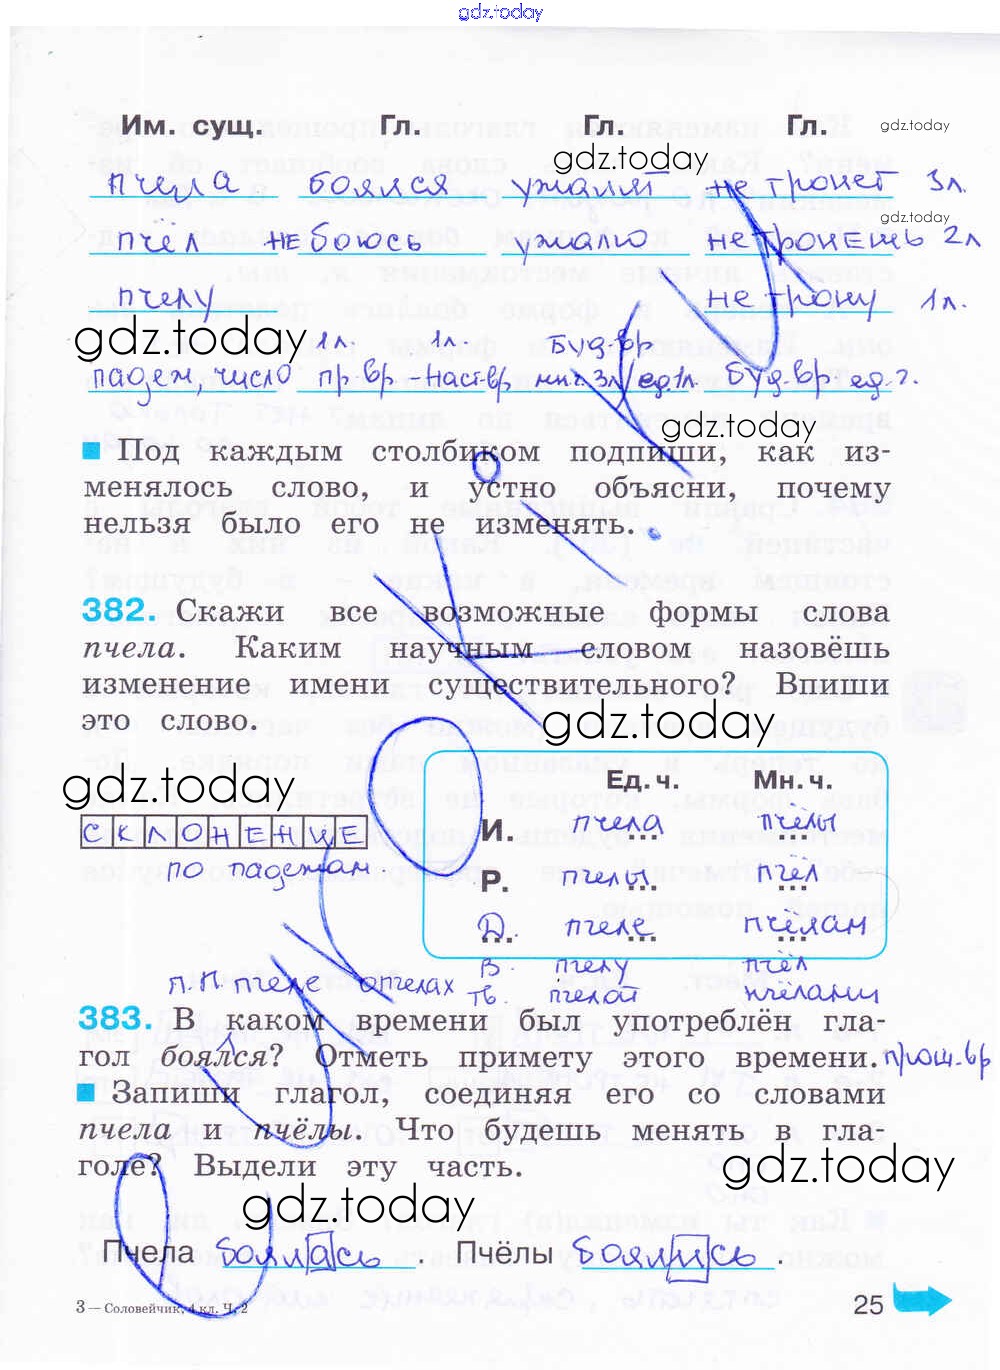 gdz.today
Им. сущ. Гл. Гл. Гл. gdz.today
gdz.today
пчела боялся ужалит не тронет 3л.
gdz.today
пчёл не боюсь ужалю не тронешь 2л
пчелу не трону 1л.
gdz.today 1л. 1л. Буд-вр
падеж, число пр.вр - наст-вр ед.1л. буд-вр ед.ч.
gdz.today
Под каждым столбиком подпиши, как из-
менялось слово, и устно объясни, почему
нельзя было его не изменять.
382. Скажи все возможные формы слова
пчела. Каким научным словом назовёшь
изменение имени существительного? Впиши
это слово.
gdz.today
gdz.today
Ед. ч. Мн. ч.
СКЛОНЕНИЕ И. пчела пчёлы
по падежам. Р. пчелы пчёл
Д. пчеле пчёлам
В. пчелу пчёл
П.П. пчеле о пчелах Тв. пчелой пчёлами
383. В каком времени был употреблён гла-
гол боялся? Отметь примету этого времени. прош.вр
Запиши глагол, соединяя его со словами
пчела и пчёлы. Что будешь менять в гла-
голе? Выдели эту часть.
gdz.today
gdz.today
Пчела боялась. Пчёлы боялись.
3 – Соловейчик, 4 кл. Ч. 2 25